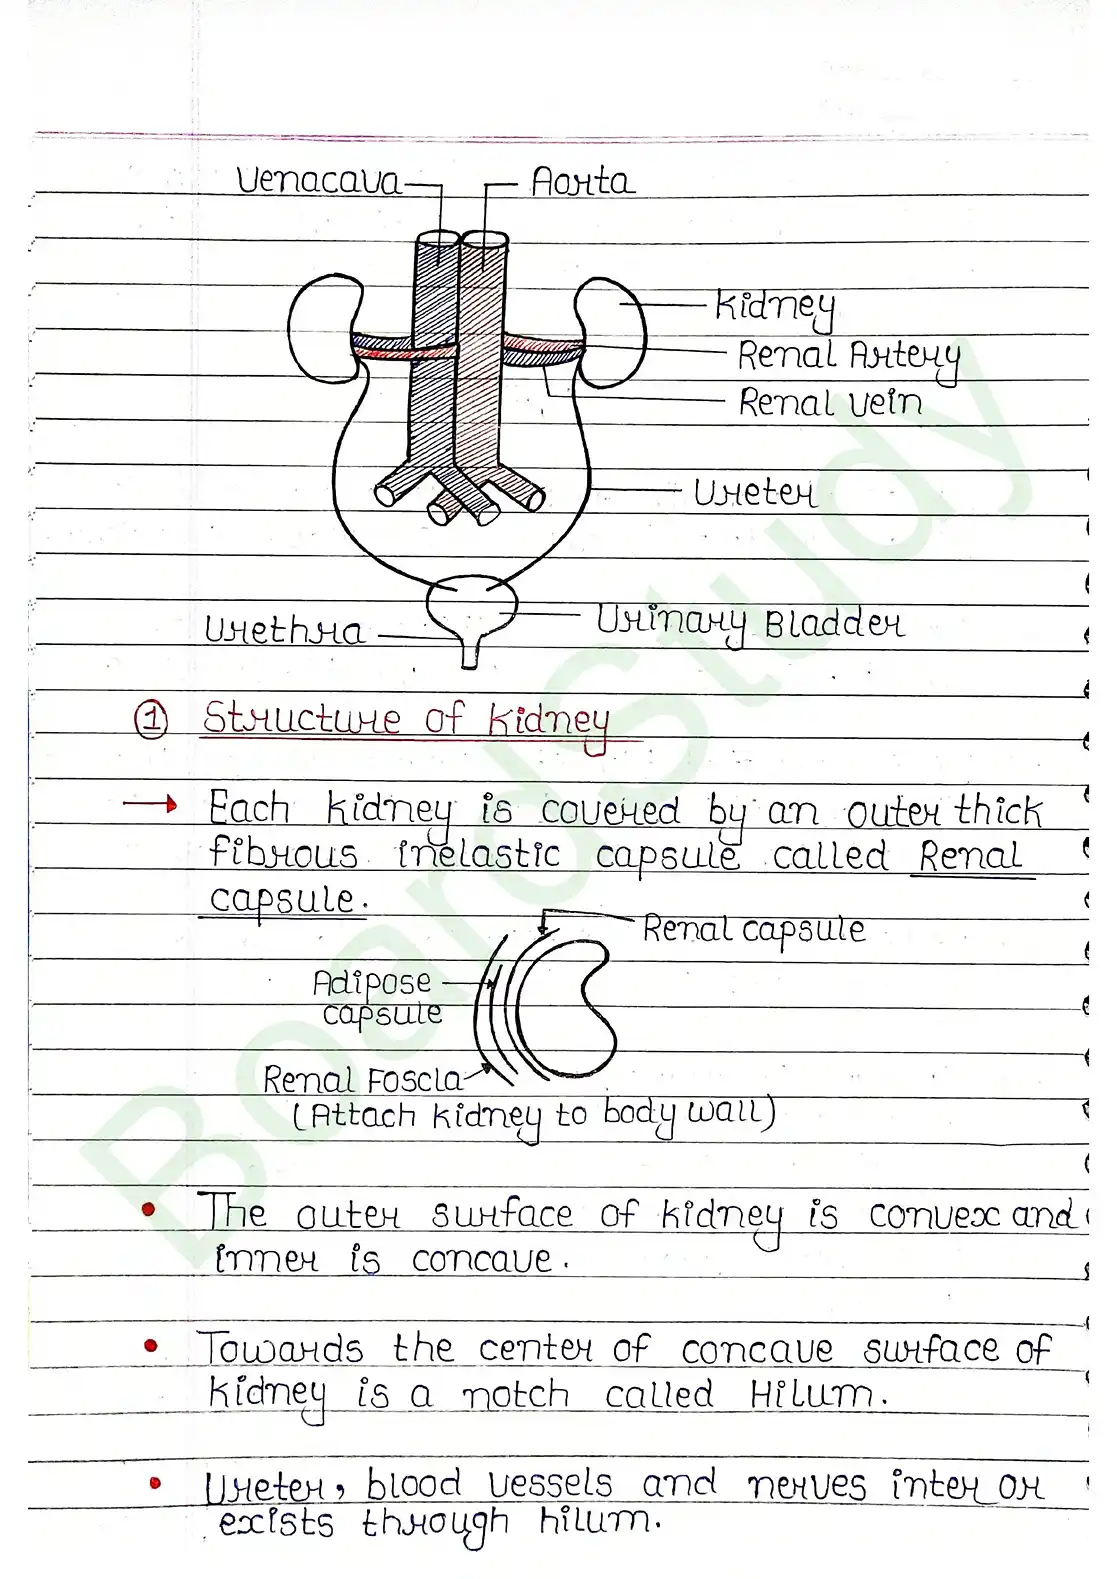 Venacava
Aorta
Kidney
Renal Artery
Renal vein
Ureter
Urinary Bladder
Urethra
① Structure of kidney
→ Each kidney is covered by an outer thick
fibrous inelastic capsule called Renal
capsule.
Renal capsule
Adipose
capsule
Renal Foscla
(Attach kidney to body wall)
• The outer surface of kidney is convex and
inner is concave.
• Towards the center of concave surface of
kidney is a notch called Hilum.
• Ureter, blood vessels and nerves inter or
exists through hilum.
BoardStudy